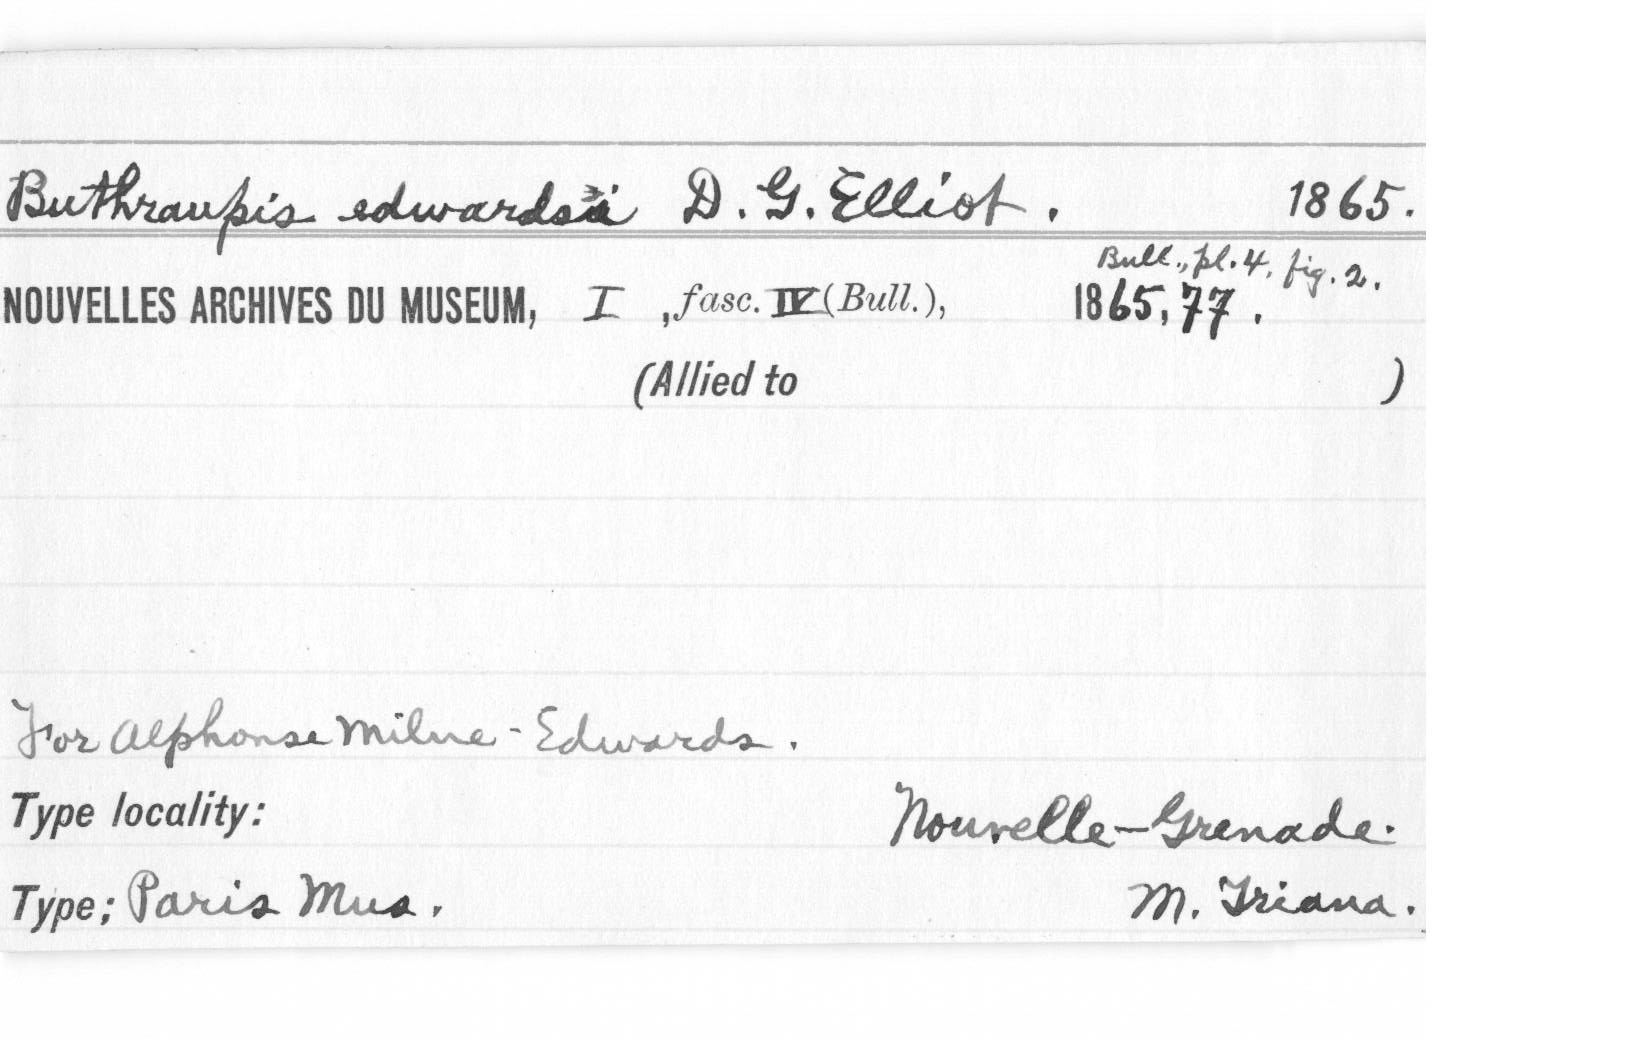 Buthraupis edwardsi D. G. Elliot. 1865.
Bull., pl. 4, fig. 2.
NOUVELLES ARCHIVES DU MUSEUM, I, fasc. IV (Bull.), 1865, 77.
(Allied to )
For Alphonse Milne-Edwards.
Type locality: Nouvelle-Grenade.
Type; Paris Mus. M. Triana.